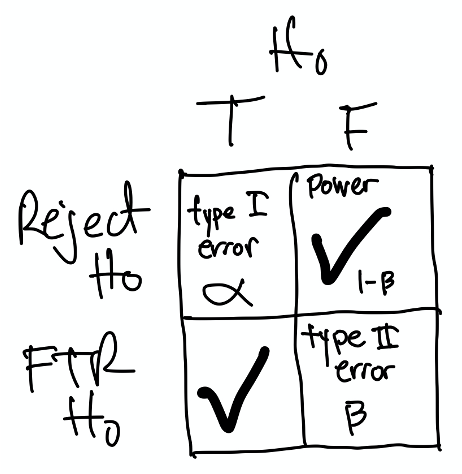 H₀
T F
Reject
H₀
type I
error
α
Power
✓
1-β
FTR
H₀
✓
type II
error
β